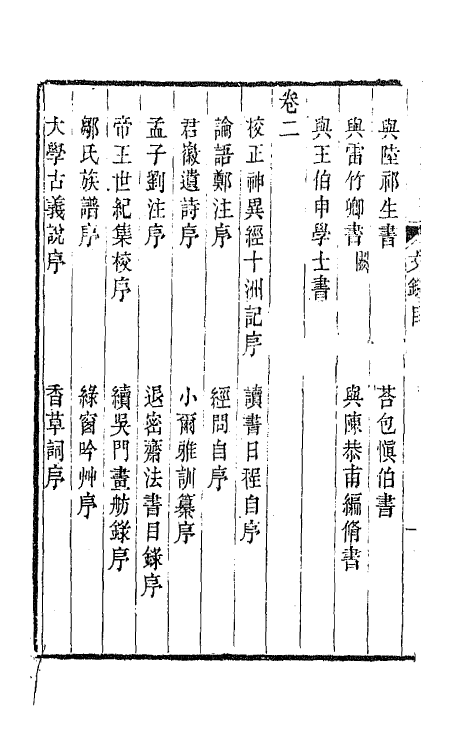 與陸祁生書　荅包愼伯書
與雷竹卿書闕　與陳恭甫編脩書
與王伯申學士書
卷二
校正神異經十洲記序　讀書日程自序
論語鄭注序　經問自序
君徽遺詩序　小爾雅訓纂序
孟子劉注序　退密齋法書目錄序
帝王世紀集校序　續吳門畫舫錄序
鄒氏族譜序　綠窗吟艸序
大學古義說序　香草詞序